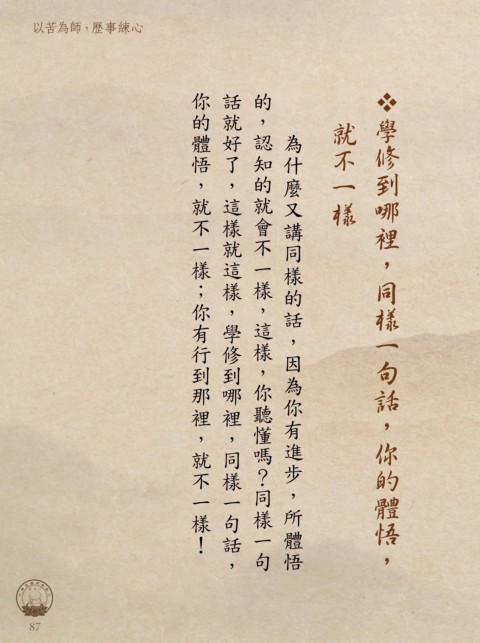 以苦為師，歷事練心
❖學修到哪裡，同樣一句話，你的體悟，
就不一樣
為什麼又講同樣的話，因為你有進步，所體悟
的，認知的就會不一樣，這樣，你聽懂嗎？同樣一句
話就好了，這樣就這樣，學修到哪裡，同樣一句話，
你的體悟，就不一樣；你有行到那裡，就不一樣！
87